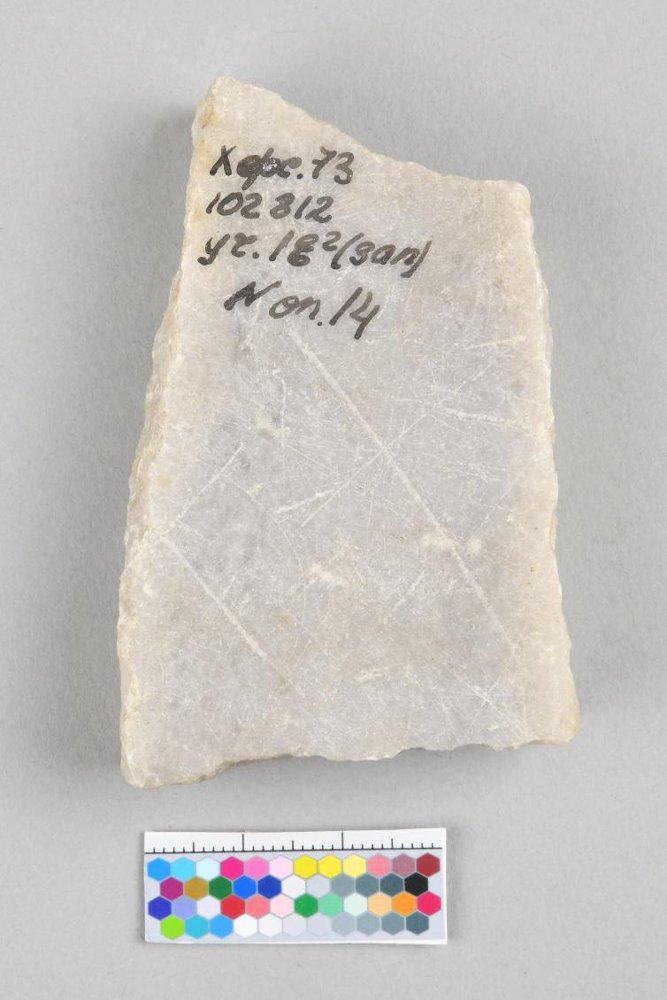 Херс. 73
102812
уч. 1г² (зап)
N оп. 14